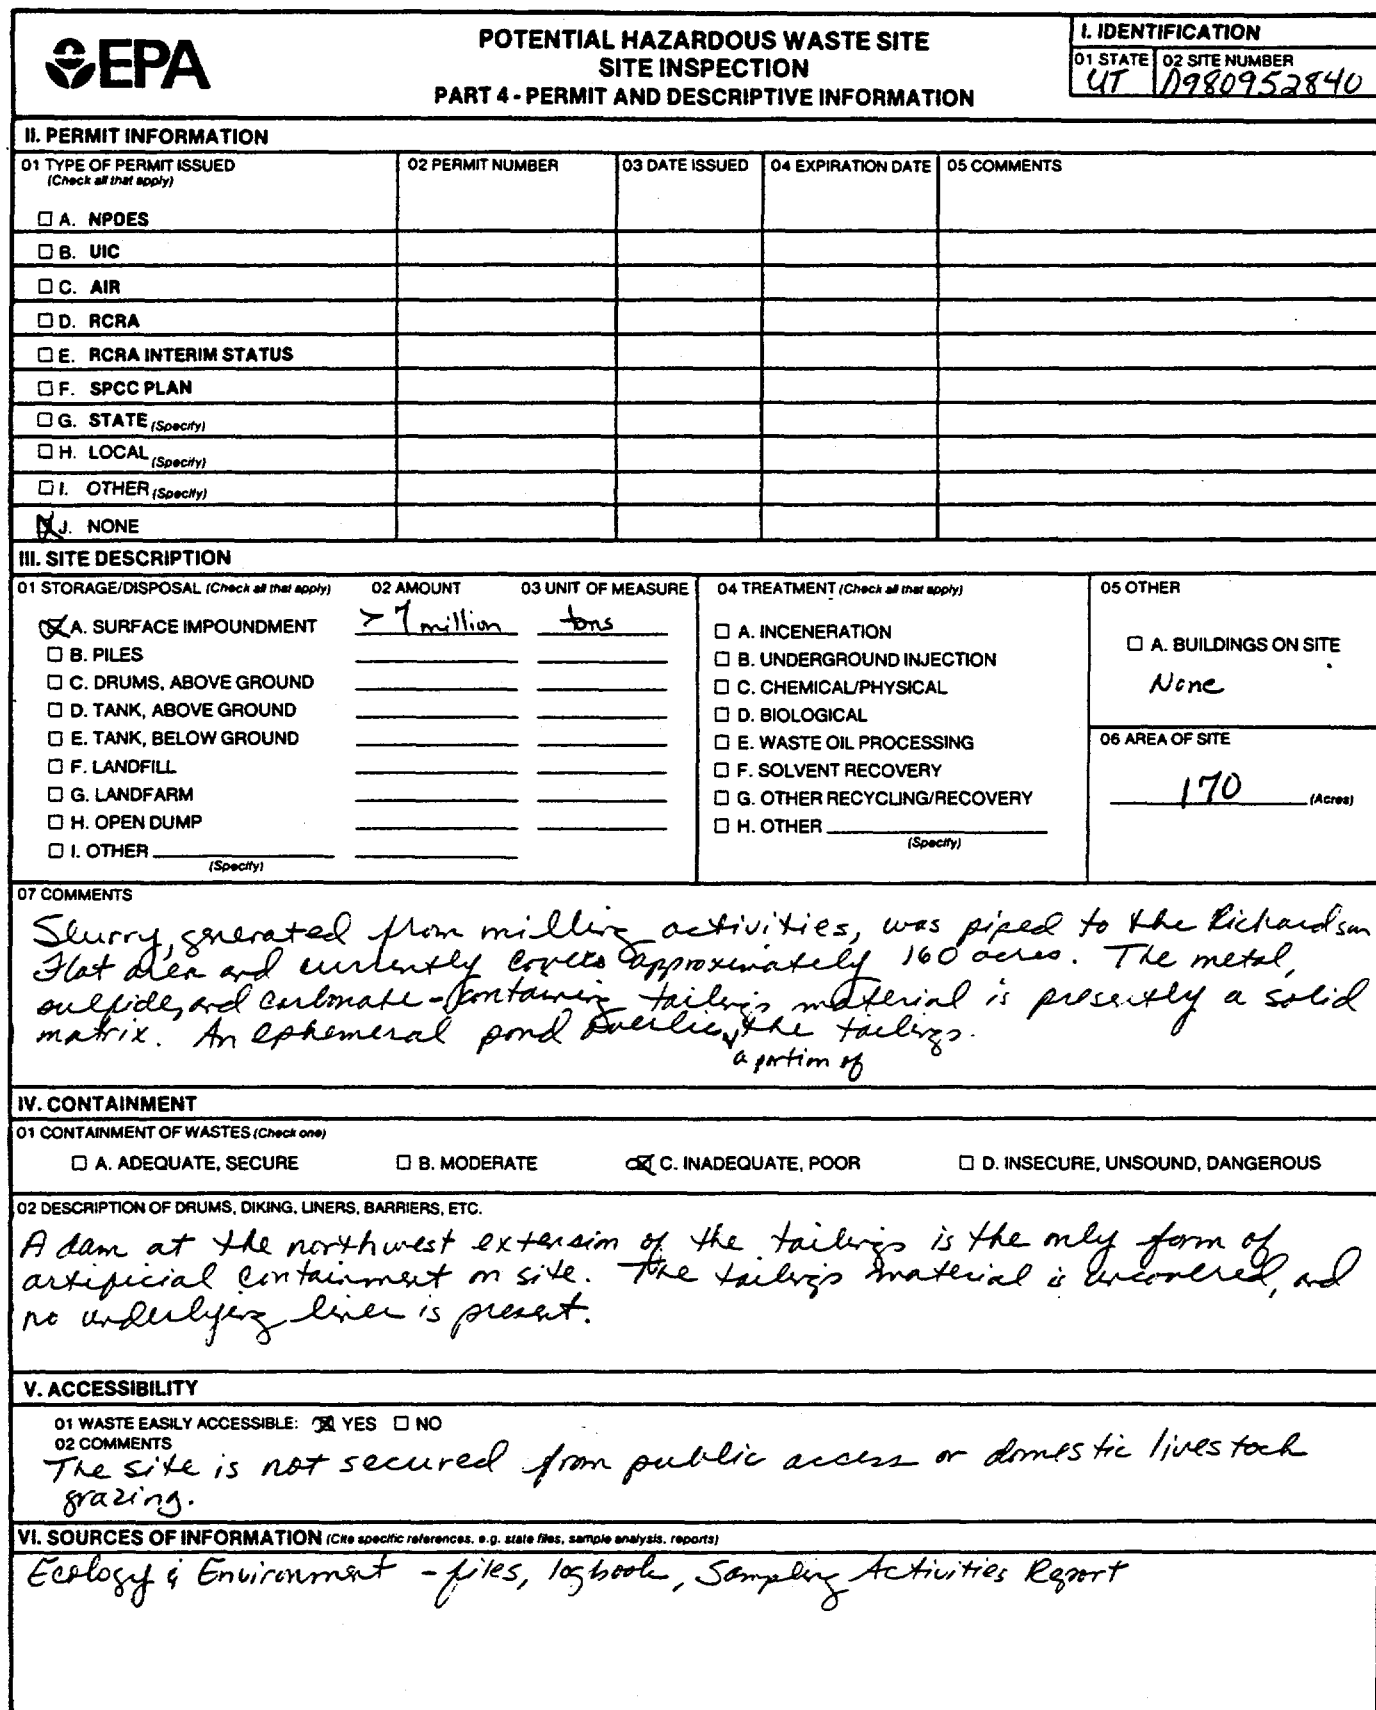 EPA
POTENTIAL HAZARDOUS WASTE SITE
SITE INSPECTION
PART 4 - PERMIT AND DESCRIPTIVE INFORMATION
I. IDENTIFICATION
01 STATE 02 SITE NUMBER
UT D980952840
II. PERMIT INFORMATION
01 TYPE OF PERMIT ISSUED
(Check all that apply)
02 PERMIT NUMBER
03 DATE ISSUED
04 EXPIRATION DATE
05 COMMENTS
☐ A. NPDES
☐ B. UIC
☐ C. AIR
☐ D. RCRA
☐ E. RCRA INTERIM STATUS
☐ F. SPCC PLAN
☐ G. STATE (Specify)
☐ H. LOCAL (Specify)
☐ I. OTHER (Specify)
☒ J. NONE
III. SITE DESCRIPTION
01 STORAGE/DISPOSAL (Check all that apply) 02 AMOUNT 03 UNIT OF MEASURE
☒ A. SURFACE IMPOUNDMENT > 7 million tons
☐ B. PILES
☐ C. DRUMS, ABOVE GROUND
☐ D. TANK, ABOVE GROUND
☐ E. TANK, BELOW GROUND
☐ F. LANDFILL
☐ G. LANDFARM
☐ H. OPEN DUMP
☐ I. OTHER
(Specify)
04 TREATMENT (Check all that apply)
☐ A. INCENERATION
☐ B. UNDERGROUND INJECTION
☐ C. CHEMICAL/PHYSICAL
☐ D. BIOLOGICAL
☐ E. WASTE OIL PROCESSING
☐ F. SOLVENT RECOVERY
☐ G. OTHER RECYCLING/RECOVERY
☐ H. OTHER
(Specify)
05 OTHER
☐ A. BUILDINGS ON SITE
None
06 AREA OF SITE
170 (Acres)
07 COMMENTS
Slurry, generated from milling activities, was piped to the Richardson
Flat area and currently covers approximately 160 acres. The metal,
sulfide, and carbonate-containing tailings material is presently a solid
matrix. An ephemeral pond overlies the tailings.
a portion of
IV. CONTAINMENT
01 CONTAINMENT OF WASTES (Check one)
☐ A. ADEQUATE, SECURE ☐ B. MODERATE ☒ C. INADEQUATE, POOR ☐ D. INSECURE, UNSOUND, DANGEROUS
02 DESCRIPTION OF DRUMS, DIKING, LINERS, BARRIERS, ETC.
A dam at the northwest extension of the tailings is the only form of
artificial containment on site. The tailings material is uncovered, and
no underlying liner is present.
V. ACCESSIBILITY
01 WASTE EASILY ACCESSIBLE: ☒ YES ☐ NO
02 COMMENTS
The site is not secured from public access or domestic livestock
grazing.
VI. SOURCES OF INFORMATION (Cite specific references, e.g. state files, sample analysis, reports)
Ecology & Environment - files, logbook, Sampling Activities Report